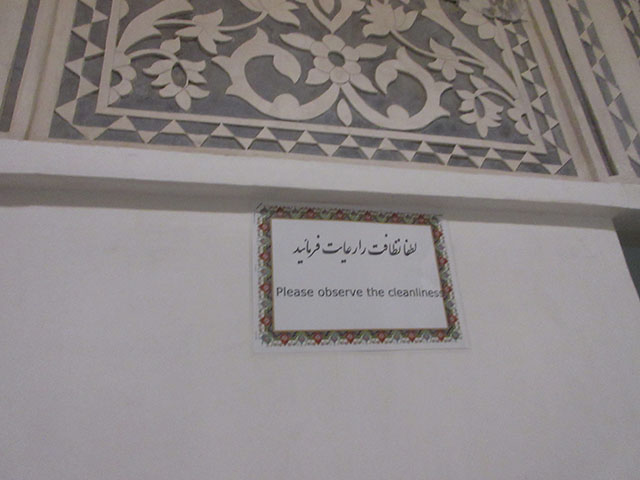 لطفا نظافت را رعایت فرمائید
Please observe the cleanliness